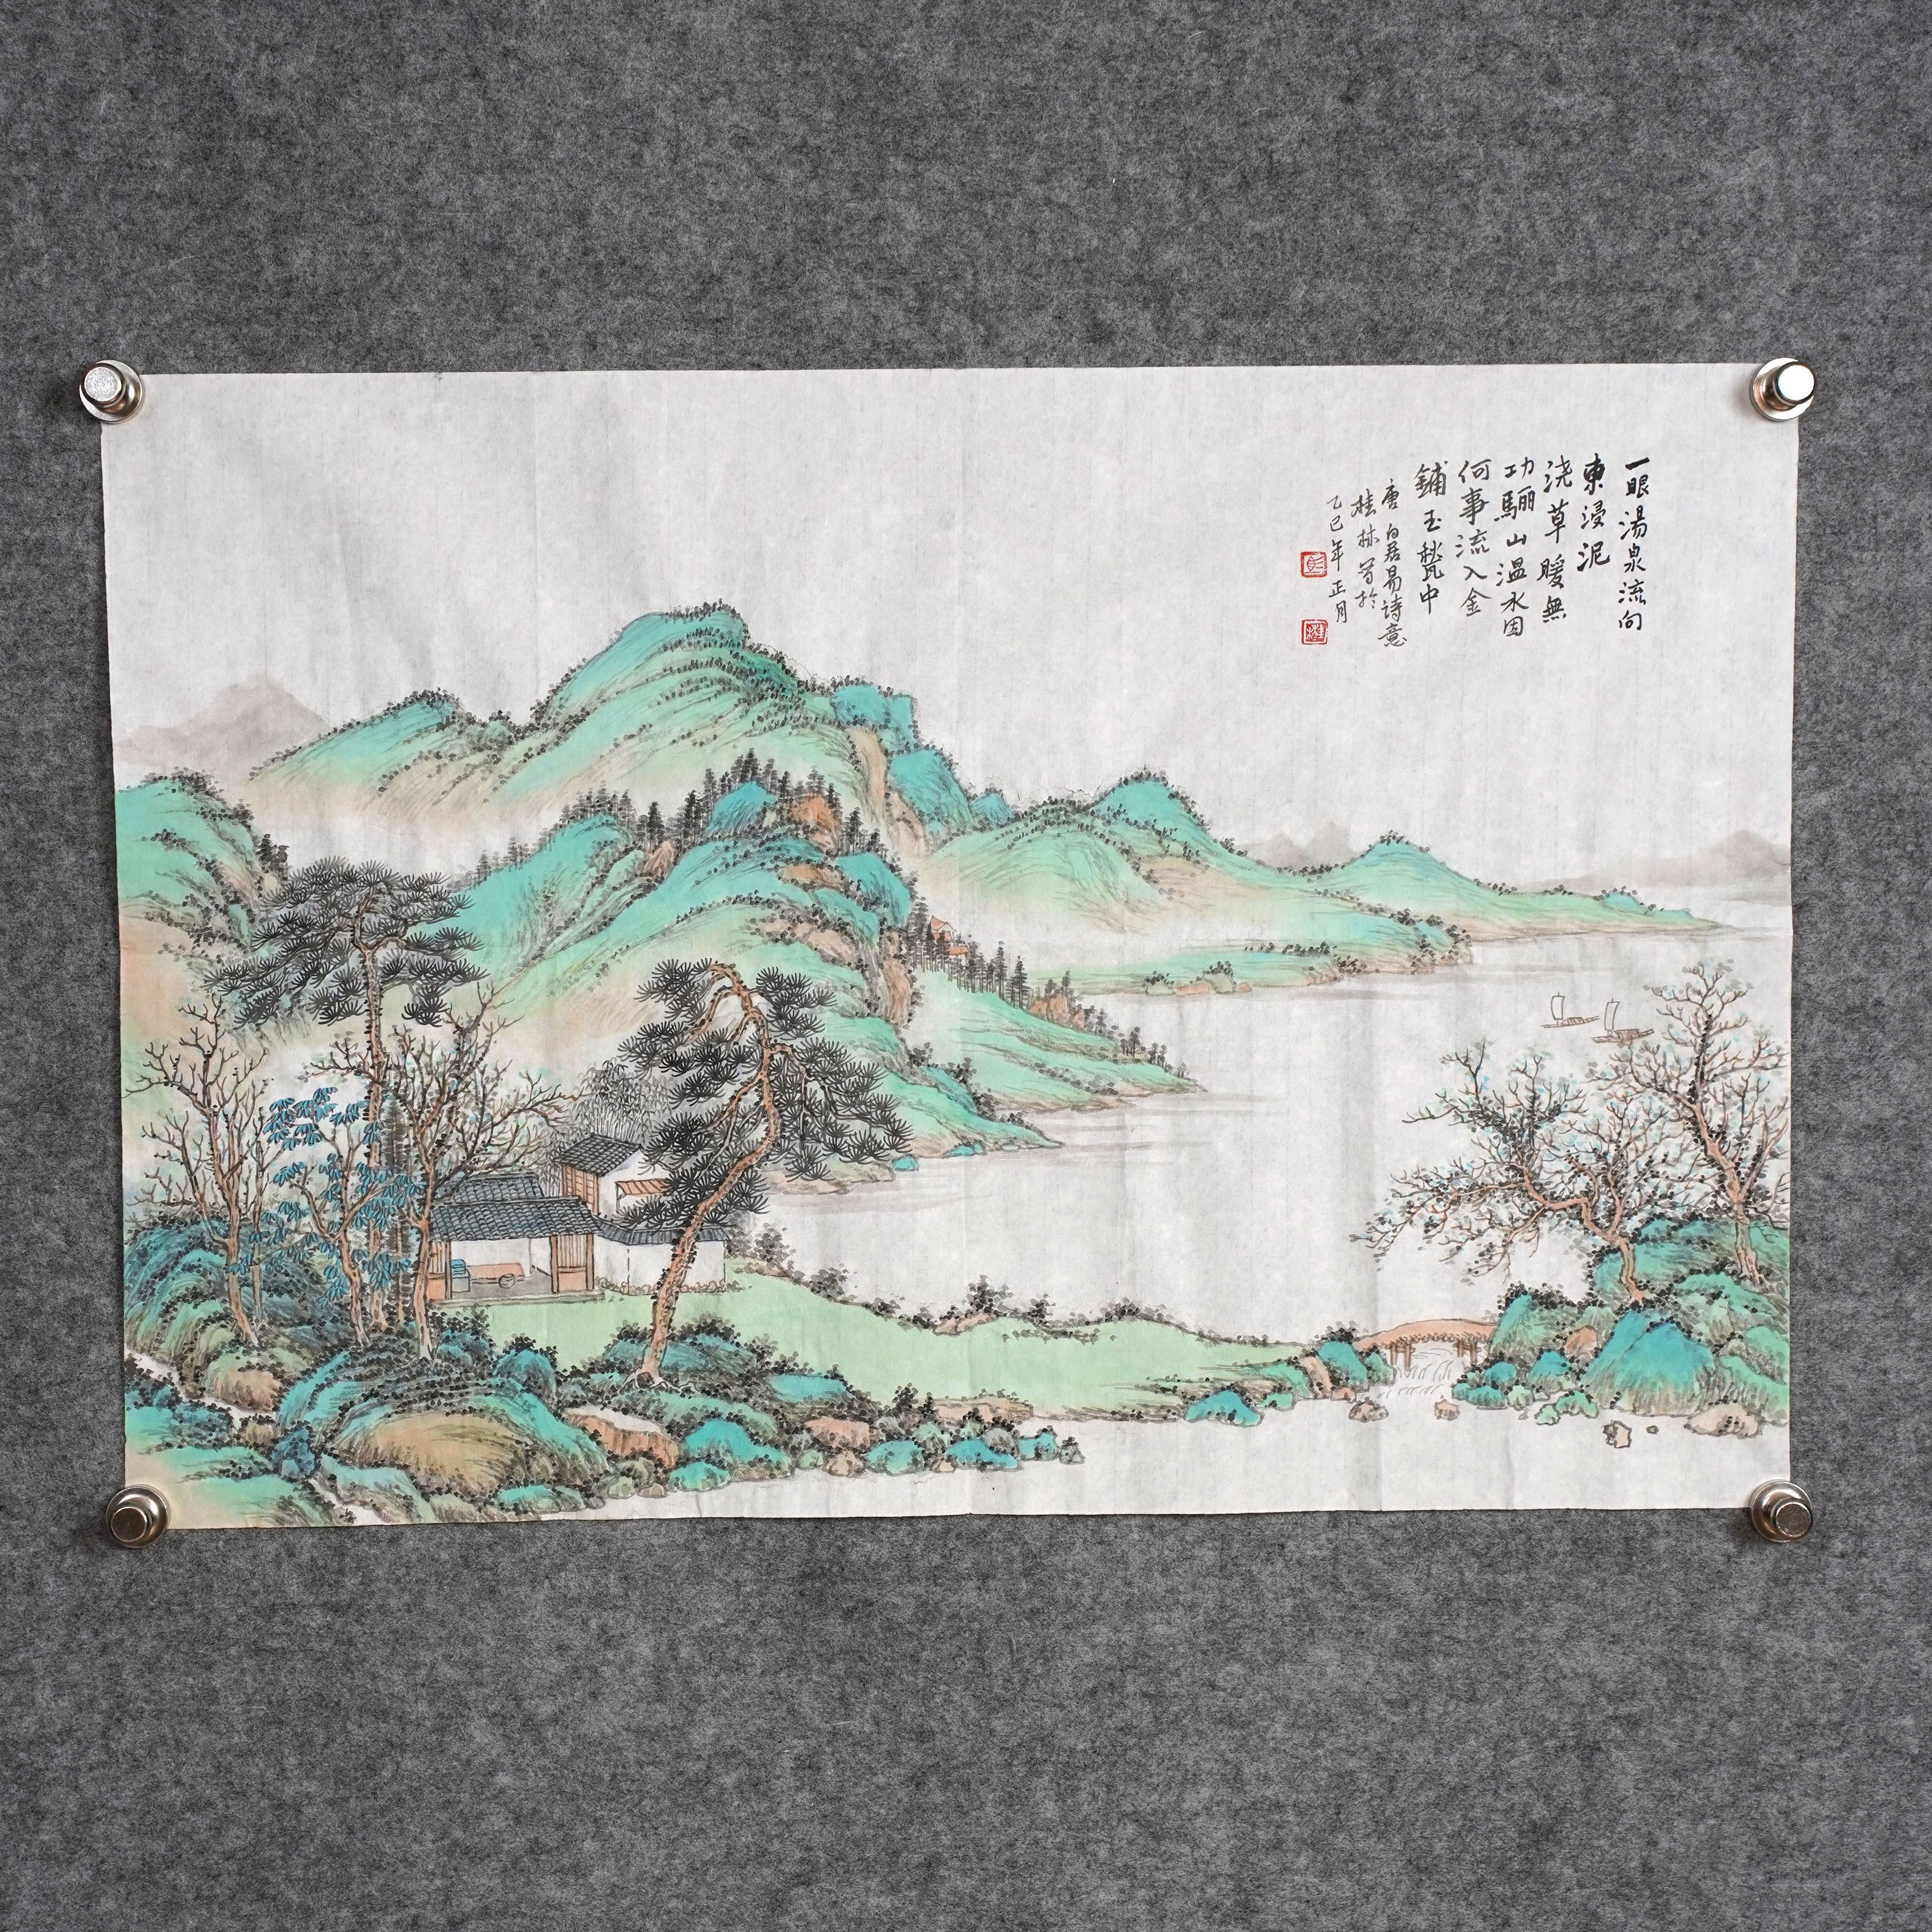 一眼湯泉流向
東浸泥
浇草暖無
功驪山溫水因
何事流入金
鋪玉甃中
唐白居易诗意
桂林写於
乙巳年正月
彭
桂